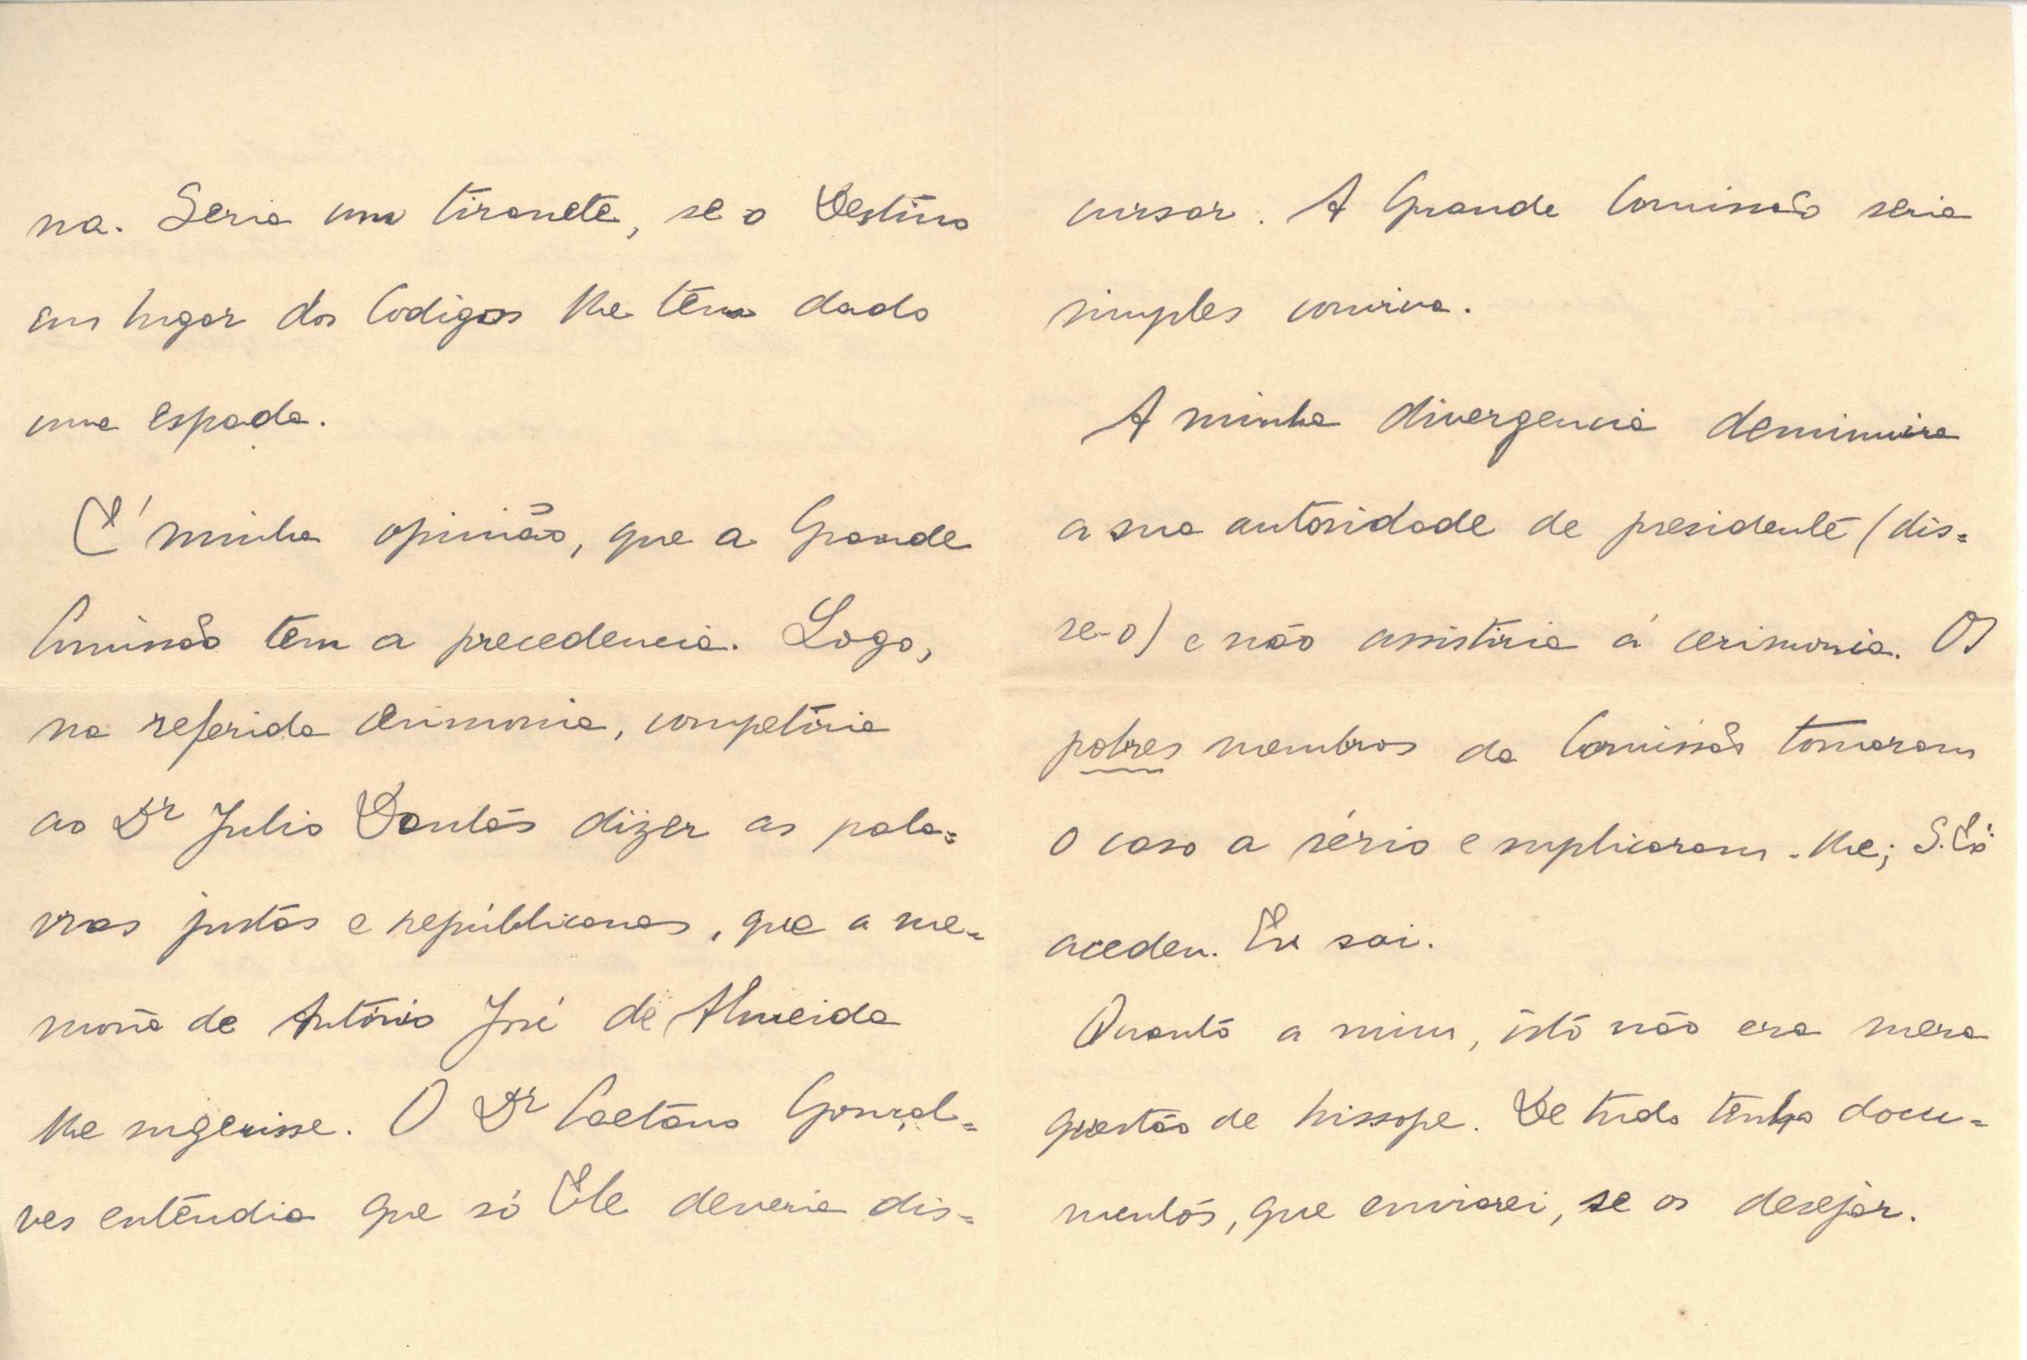 na. Seria um tiranete, se o Destino
em lugar dos Codigos lhe tem dado
uma espada.
E' minha opinião, que a Grande
Comissão tem a precedencia. Logo,
na referida cerimonia, competiria
ao Dr Julio Dantas dizer as pala=
vras justas e repúblicanas, que a me=
moria de António José de Almeida
lhe sugerisse. O Dr Caetano Gonçal=
ves entendia que só Ele deveria dis=
cursar. A Grande Comissão seria
simples conviva.
A minha divergencia deminuira
a sua autoridade de presidente (dis=
se-o) e não assistiria á cerimonia. Os
pobres membros da Comissão tomaram
o caso a sério e suplicaram-lhe; S. Exª
acedeu. Eu sai.
Quanto a mim, isto não era mera
questão de hissope. De tudo tenho docu=
mentos, que enviarei, se os desejar.